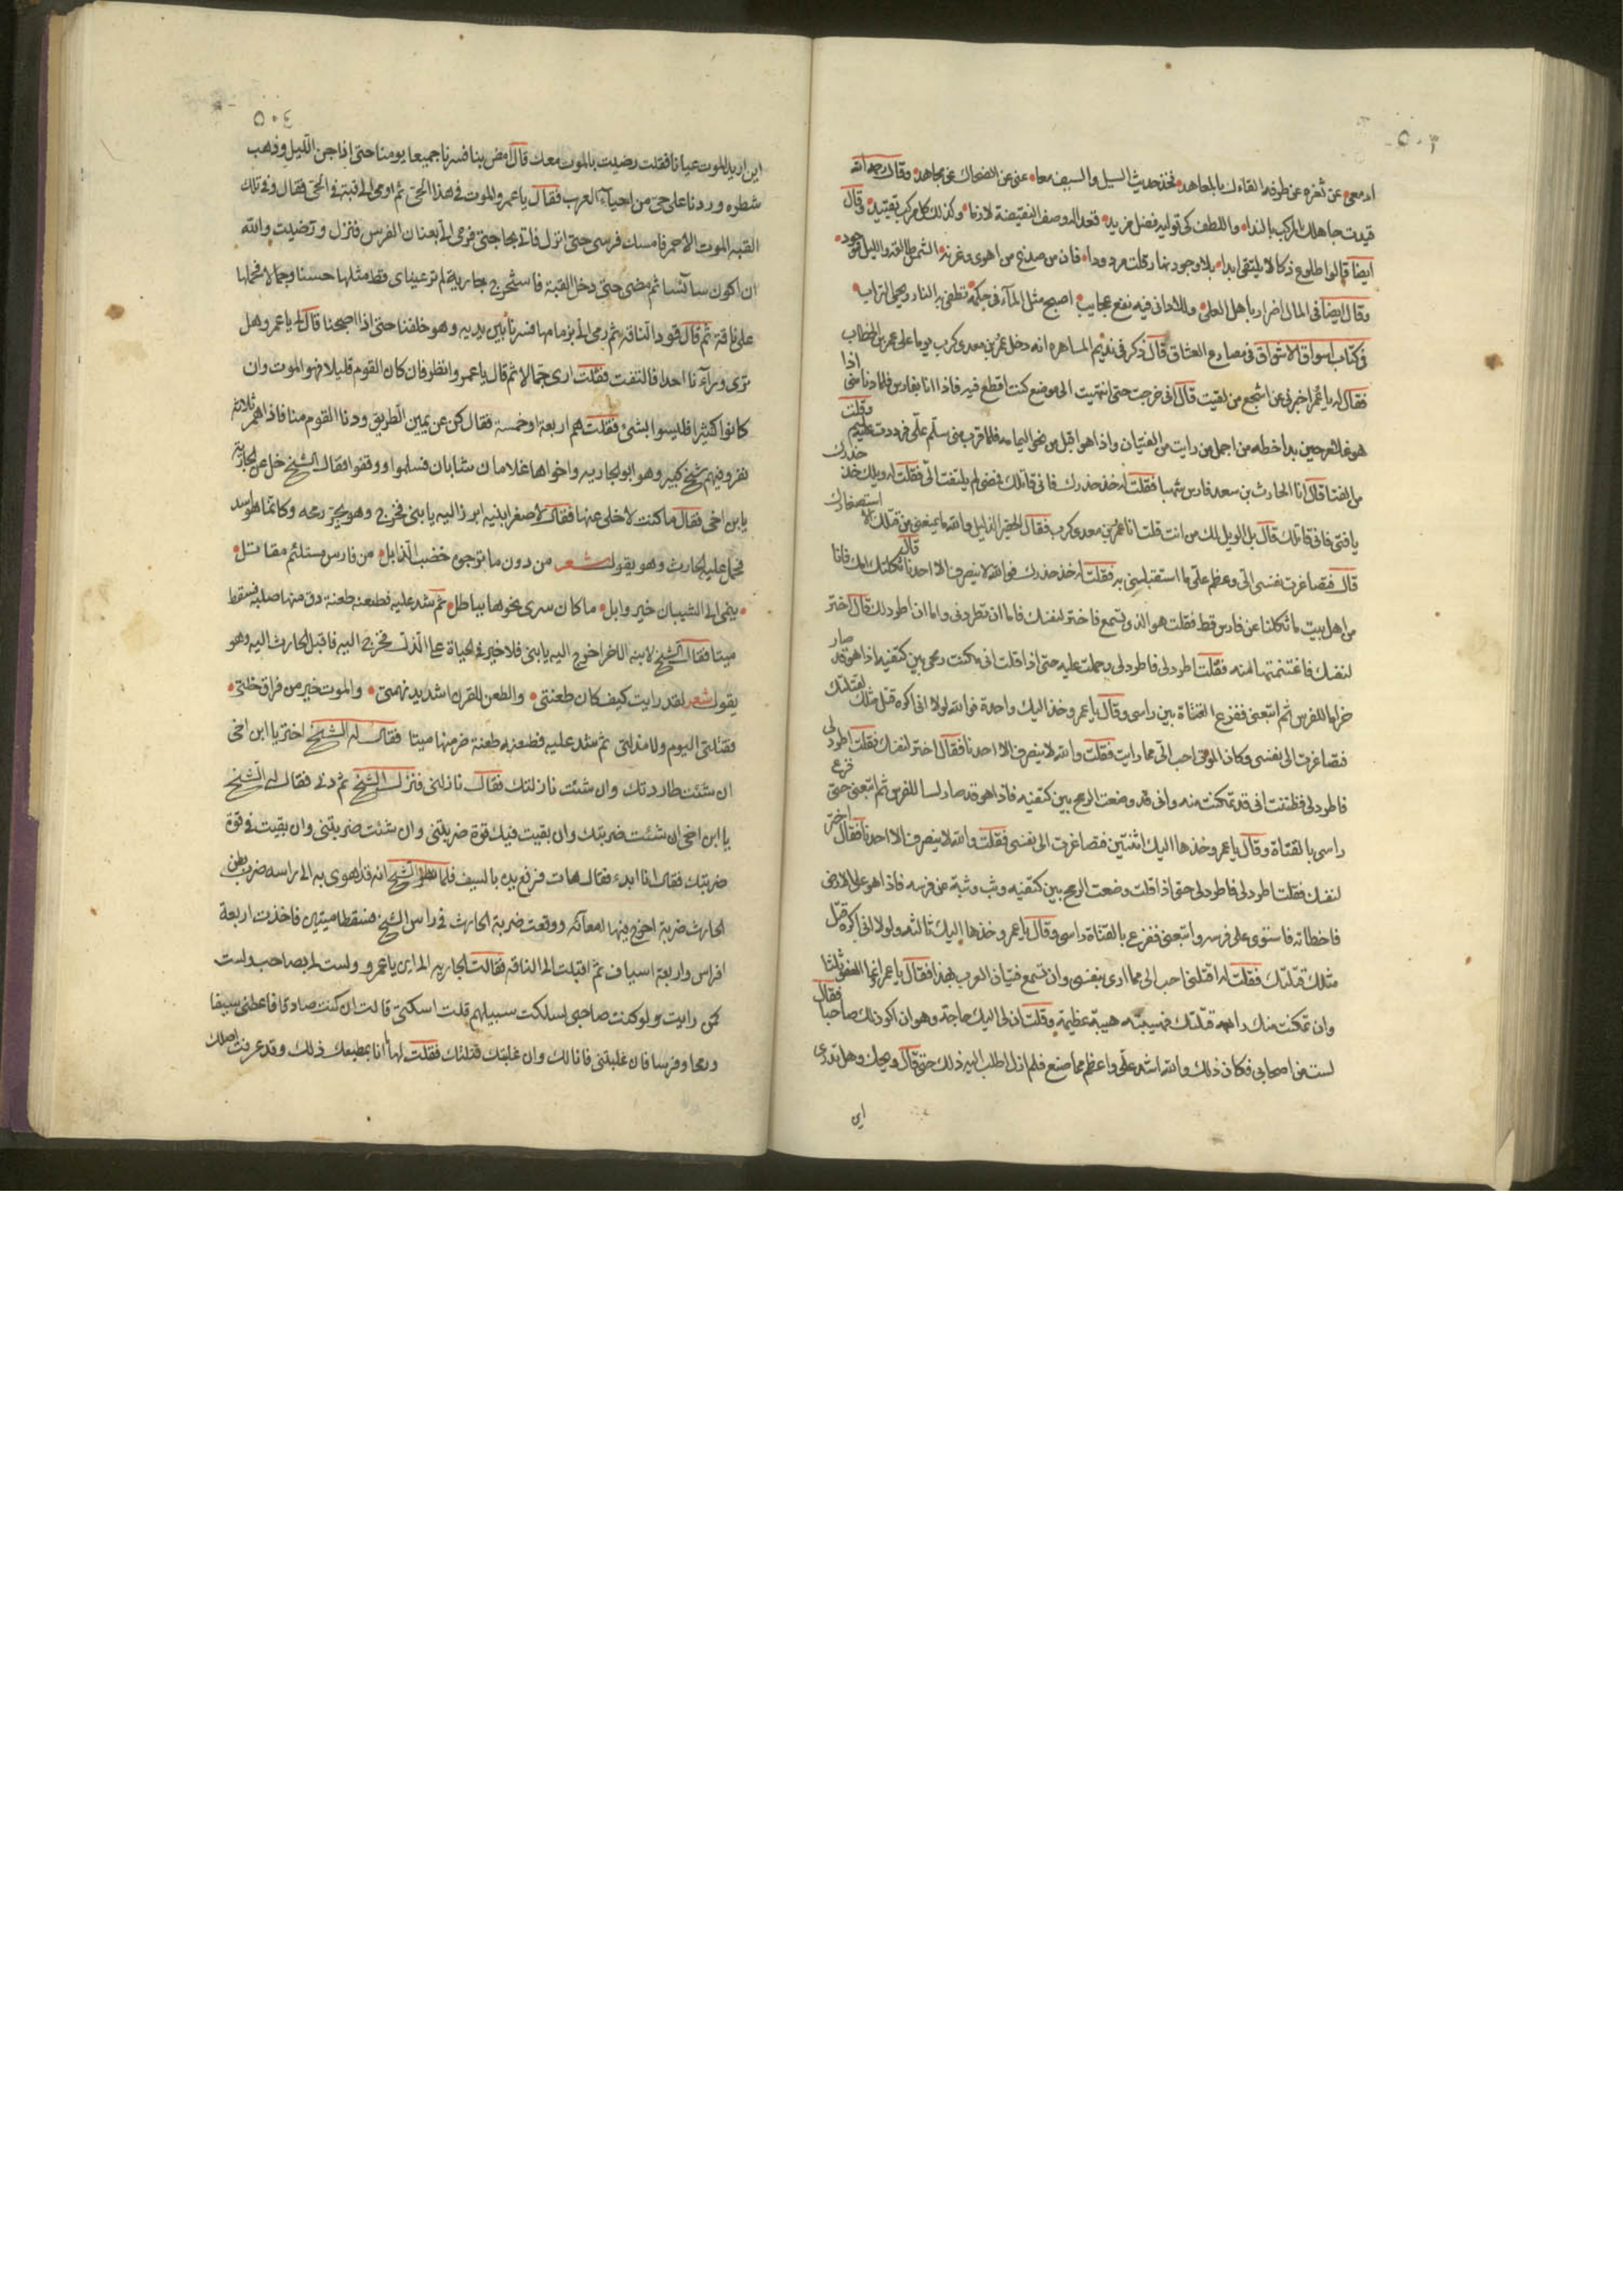 ٥٠٣
ادمعى عن ثغره عن طرفه القاءك بالمعاهد فخذ حديث السيل والسيف معا عنى عن الضحاك عن مجاهد وقال رحمه الله
قيدت جاهلك المركب بالندا واللطف كى توليه فضل مزيد فغدا له وصف النقيضة لازما وكذلك كل مركب تقييد وقال
ايضا قالوا طلوع ذكا لا يلتقى ابدا بلا وجود نهار قلت مردودا فان من صدغ من اهوى وغرته الشمس طالعة والليل موجود
وقال ايضا فى المال اضرار باهل العلى وللادانى فيه نفع عجايب اصبح مثل المآء فى حكمة تطفى به النار ويحيى التراب
وكتاب اسواق الاشواق فى مصارع العشاق قال ذكر فى نديم المسامره انه دخل عمرو بن معدى كرب يوما على عمر بن الخطاب
فقال له يا عمرو اخبرنى عن اشجع من لقيت قال انى خرجت حتى انتهيت الى موضع كنت اقطع فيه فاذا انا بفارس فلما دنا منى اذا
هو غلام حين بدا خطه من اجمل من رايت من الفتيان واذا هو اقبل من نحو اليمامه فلما قرب منى سلم على فرددت عليه وقلت
من الفتا قال انا الحارث بن سعد فارس شهبا فقلت له خذ حذرك فانى قاتلك فمضى لم يلتفت الى فقلت له ويلك خذ حذرك
يا فتى فانى قاتلك قال بل الويل لك من انت قلت انا عمرو بن معدى كرب فقال الحقير الذليل والله ما يمنعنى من قتلك الا استصغارك
قال فتصاغرت نفسى الى وعظم على ما استقبلنى به فقلت له خذ حذرك فوالله لا ينصرف الا احدنا قال ثكلتك امك فانا
من اهل بيت ما ثكلنا عن فارس قط فقلت هو الذى تسمع فاختر لنفسك فاما ان تطرد لى واما ان اطرد لك قال اختر
لنفسك فاغتنمتها منه فقلت اطرد لى فاطرد لى وحملت عليه حتى اذا قلت انى مكنت رمحى بين كتفيه اذا هو قد صار
حزاما للفرس ثم اتبعنى فقرع القناة بين راسى وقال يا عمرو خذ اليك واحدة فوالله لولا انى اكره قتل مثلك لقتلتك
فتصاغرت الى نفسى وكان الموت احب الى مما رايت فقلت والله لا ينصرف الا احدنا فقال اختر لنفسك فقلت اطرد لى
فاطرد لى فظننت انى قد تمكنت منه وانى قد وضعت الرمح بين كتفيه فاذا هو قد صار لببا للفرس ثم اتبعنى حتى قرع
راسى بالقناة وقال يا عمرو خذها اليك اثنتين فتصاغرت الى نفسى فقلت والله لا ينصرف الا احدنا فقال اختر
لنفسك فقلت اطرد لى فاطرد لى حتى اذا قلت وضعت الرمح بين كتفيه وثب وثبة من فرسه فاذا هو على الارض
فاخطاته فاستوى على فرسه واتبعنى فقرع بالقناة راسى وقال يا عمرو خذها اليك ثالثه ولولا انى اكره قتل
مثلك قتلتك فقلت له اقتلنى احب الى مما ارى بنفسى وان تسمع فتيان العرب بهذا فقال يا عمرو انما العفو ثلثا
وان تمكنت منك رابعه قتلتك فهيبته هيبة عظيمة وقلت ان لى اليك حاجة وهو ان اكون لك صاحبا فقال
لست من اصحابى فكان ذلك والله اشد على واعظم مما صنع فلم ازل اطلب اليه ذلك حتى قال ويحك وهل تدرى
اين
٥٠٤
اين اريد الموت عيانا فقلت رضيت بالموت معك قال امض بنا فسرنا جميعا يومنا حتى اذا جن الليل وذهب
شطره وردنا على حى من احيآء العرب فقال يا عمرو الموت فى هذا الحى ثم اومى الى قبة فى الحى فقال وفى تلك
القبه الموت الاحمر فامسك فرسى حتى انزل فاتى بحاجتى فرمى الى بعنان الفرس فنزل ورضيت والله
ان اكون سآئسا ثم مضى حتى دخل القبة فاستخرج جارية لم تر عيناى قط مثلها حسنا وجمالا فحملها
على ناقة ثم قال قود الناقه ثم رمى الى بزمامها فسرنا بين يديه وهو خلفنا حتى اذا اصبحنا قال لى يا عمرو هل
ترى ورآءنا احدا فالتفت فقلت ارى جمالا ثم قال يا عمرو انظر فان كان القوم قليلا فهو الموت وان
كانوا كثيرا فليسوا بشئ فقلت هم اربعة او خمسة فقال كن عن يمين الطريق ودنا القوم منا فاذا هم ثلاثة
نفر وفيهم شيخ كبير وهو ابو الجاريه واخواها غلامان شابان فسلموا ووقفوا فقال الشيخ خل عن الجارية
يا بن اخى فقال ما كنت لاخلى عنها فقال لاصغر ابنيه ابرز اليه يا بنى فخرج وهو يجر رمحه وكانما هو اسد
فحمل عليه الحارث وهو يقول شعر من دون ما ترجوه خضب الذابل من فارس مستلئم مقاتل
ينمى الى الشيبان خير وايل ما كان سرى نحوها بباطل ثم شد عليه فطعنه طعنة دق منها صلبه فسقط
ميتا فقال الشيخ لابنه الاخر اخرج اليه يا بنى فلا خير فى الحياة على الذل فخرج اليه فاقبل الحارث اليه وهو
يقول شعر لقد رايت كيف كان طعنتى والطعن للقرن شديد نهمتى والموت خير من فراق خلتى
فقتلتى اليوم ولا مذلتى ثم شد عليه فطعنه طعنة خر منها ميتا فقال له الشيخ اختر يا ابن اخى
ان شئت طاردتك وان شئت نازلتك فقال نازلنى فنزل الشيخ ثم دنى فقال له الشيخ
يا ابن اخى ان شئت ضربتك وان بقيت فيك قوة ضربتنى وان شئت ضربتنى وان بقيت فى قوة
ضربتك فقال انا ابدء فقال هات فرفع يده بالسيف فلما نظر الشيخ انه قد اهوى به الى راسه ضرب بطن
الحارث ضربة اخرج منها امعآئه ووقعت ضربة الحارث فى راس الشيخ فسقطا ميتين فاخذت اربعة
افراس واربعة اسياف ثم اقبلت الى الناقه فقالت الجاريه الى اين يا عمرو ولست لى بصاحب ولست
كمن رايت ولو كنت صاحبى لسلكت سبيلهم قلت اسكتى قالت ان كنت صادقا فاعطنى سيفا
ورمحا وفرسا فان غلبتنى فانا لك وان غلبتك قتلتك فقلت لها ما انا بمطيعك فى ذلك وقد عرفت اهلك